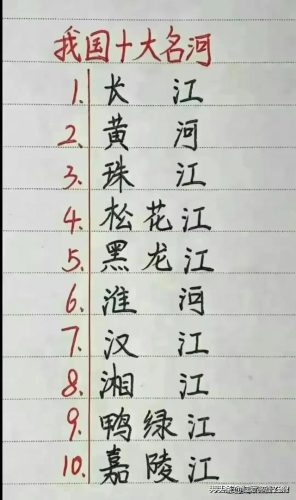 我国十大名河
1. 长江
2. 黄河
3. 珠江
4. 松花江
5. 黑龙江
6. 淮河
7. 汉江
8. 湘江
9. 鸭绿江
10. 嘉陵江